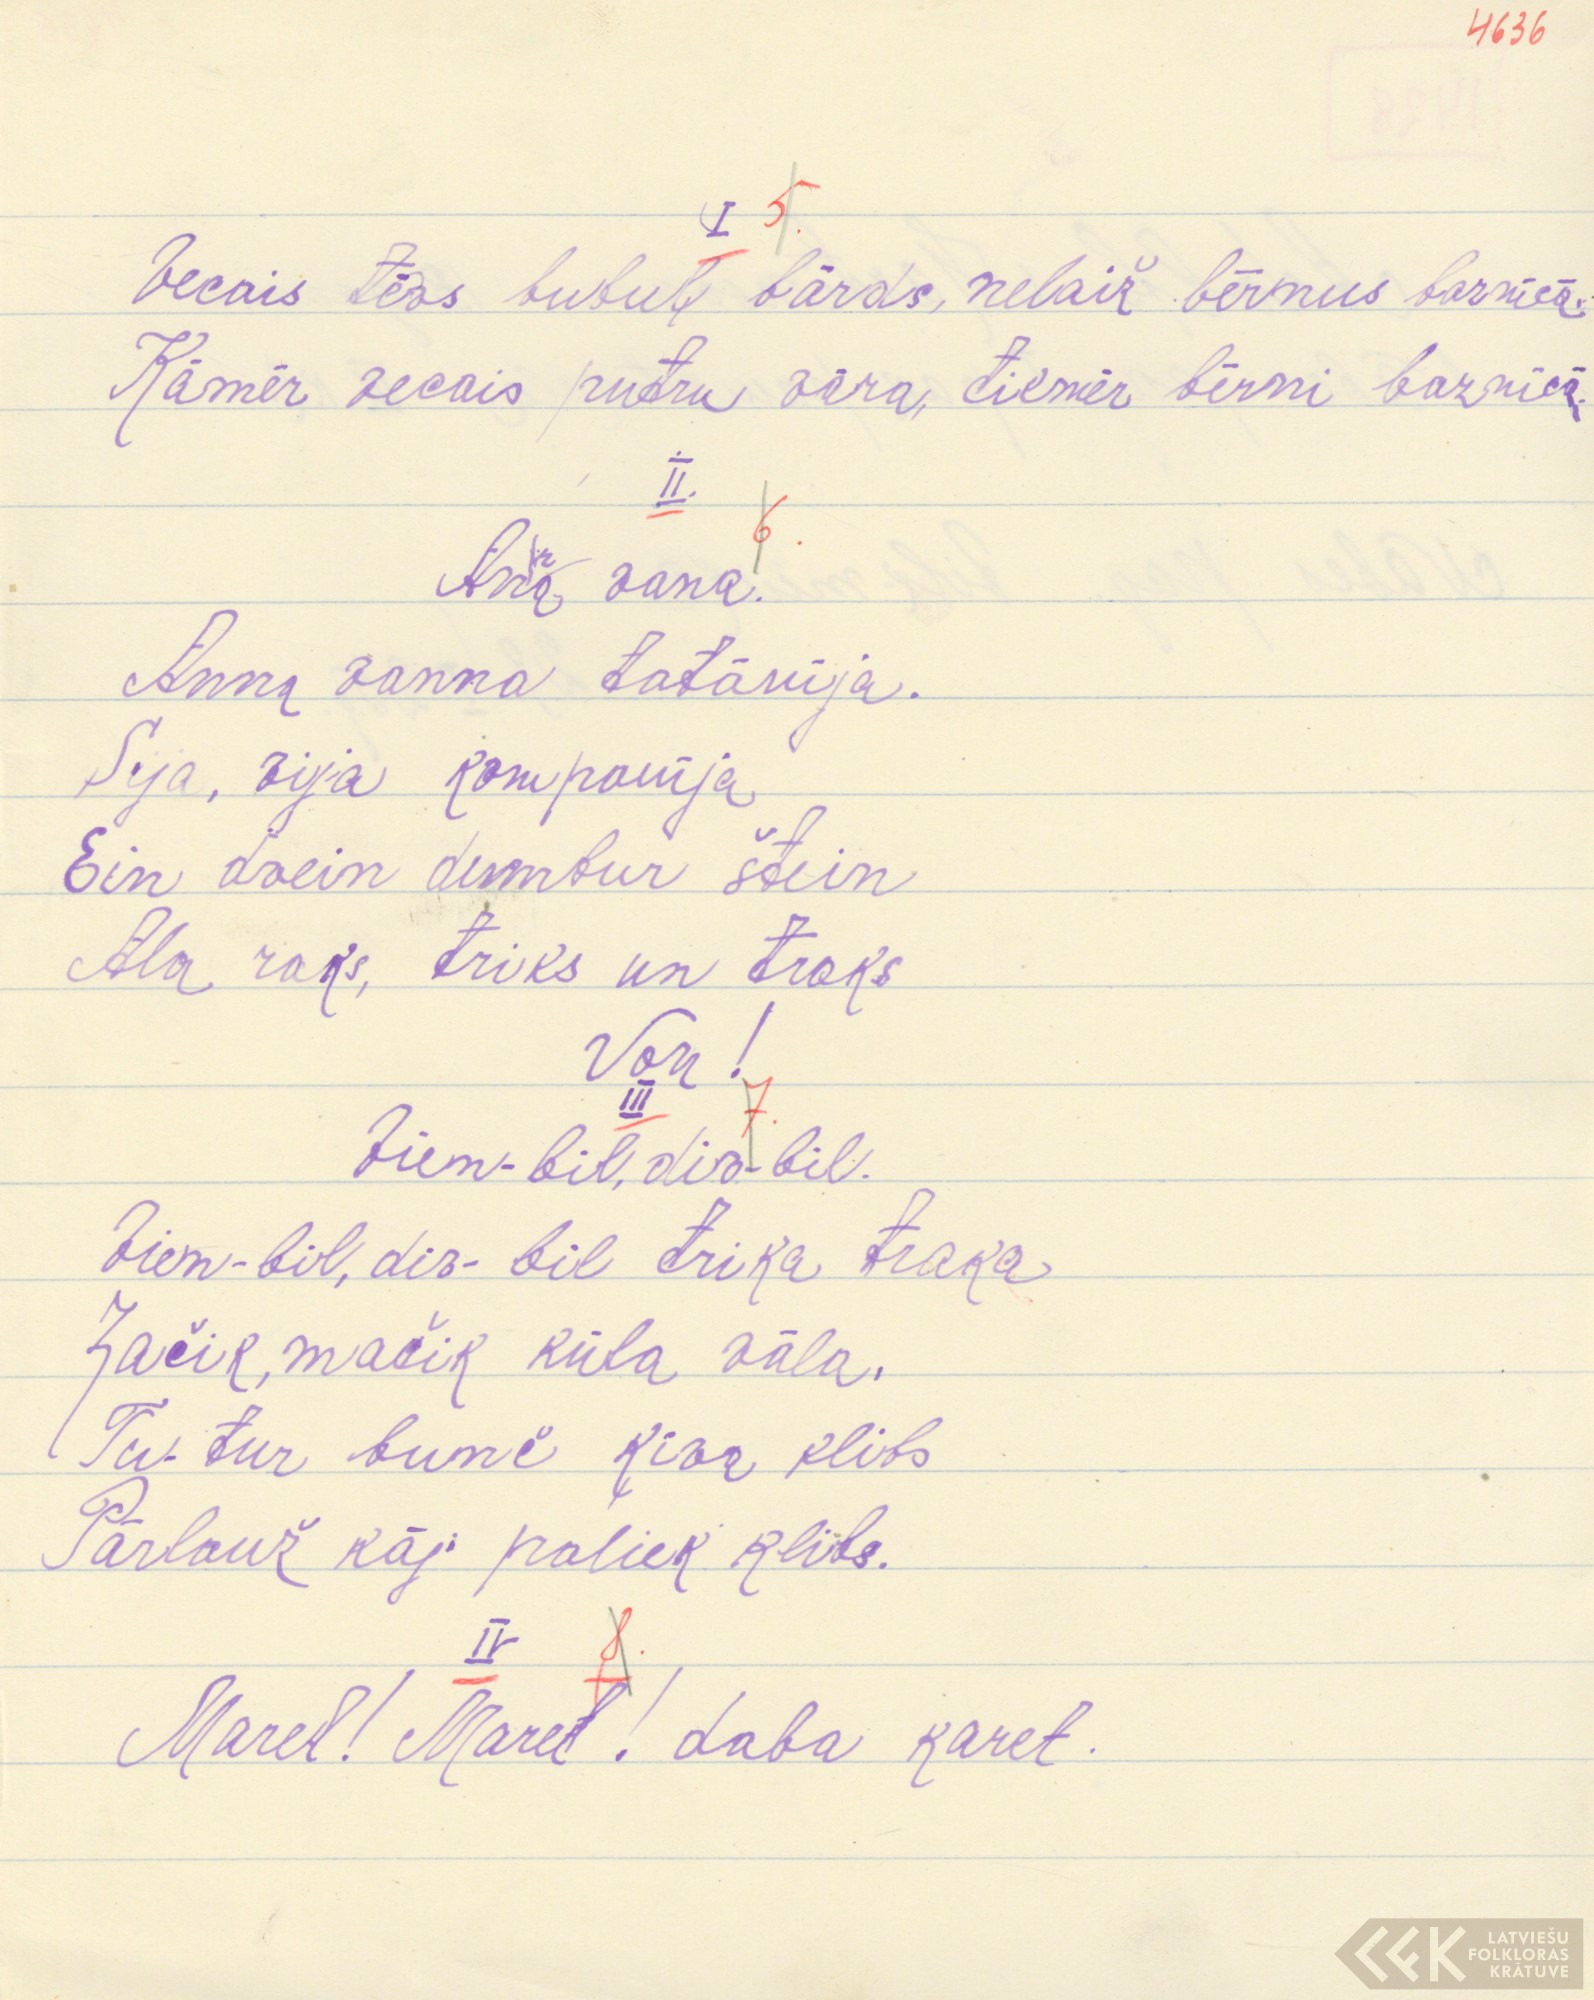 4636
I 5.
Vecais tēvs bubuļ bārds, nelaiž bērnus baznīcā.
Kāmēr vecais putru vāra, tikmēr bērni baznīcā.
II. 6.
Anna vana.
Anna vanna tatānija.
Sija, vija kompanija
Ein dvein dumbur štein
Ala raks, triks un traks
Von!
III 7.
Viem-bil, div-bil.
Viem-bil, div-bil trika traka
Začik, mačik kūla vāla.
Tu-tur bumč ķīva klibs
Pārlauž kāji paliek klibs.
IV 8.
Maret! Maret! daba karet.
LATVIEŠU
FOLKLORAS
KRĀTUVE